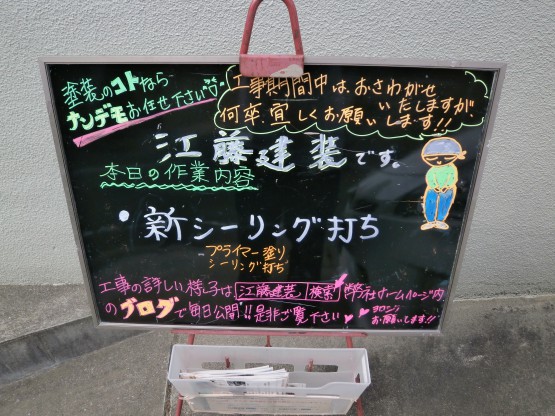 塗装のコトなら
ナンデモお任せ下さい
工事期間中は、おさわがせ
いたしますが、
何卒、宜しくお願いします!!
江藤建装です。
本日の作業内容
・新シーリング打ち
プライマー塗り
シーリング打ち
工事の詳しい様子は 江藤建装 検索 弊社ホームページ内
のブログで毎日公開!!是非ご覧下さい
ヨロシク
お願いします!!